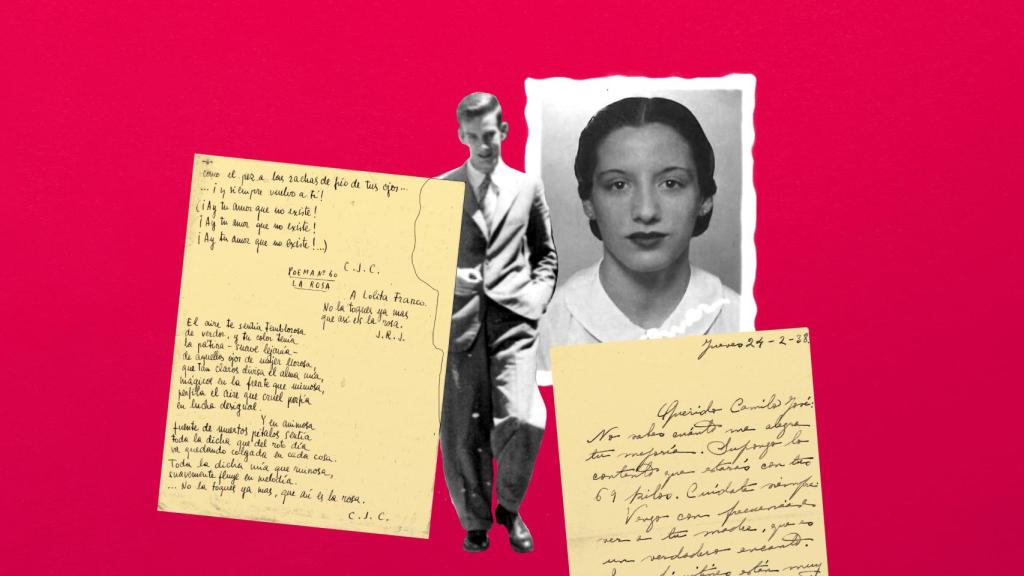 como el pez a las rachas de frío de tus ojos...
...¡y siempre vuelvo a ti!
(¡Ay tu amor que no existe!
¡Ay tu amor que no existe!
¡Ay tu amor que no existe!...)
C.J.C.
POEMA Nº 60
LA ROSA
A Lolita Franco.
No la toques ya mas
que así es la rosa.
J.R.J.
El aire te sentía temblorosa
de verdor, y tu color tenía
la pátina-suave lejanía-
de aquellos ojos de mujer llorosa,
que tan claros divisa el alma mía,
mágicos en la frente que mimosa,
perfila el aire que cruel porfía
en lucha desigual.
Y en animosa
fuente de muertos pétalos sentía
toda la dicha que del roto día
va quedando colgada en cada cosa.
Toda la dicha mía que ruinosa,
suavemente fluye en melodía.
... No la toques ya mas, que así es la rosa.
C.J.C.
Jueves 24-2-38
Querido Camilo José:
No sabes cuánto me alegra
tu mejoría. Supongo lo
contento que estarás con tus
69 kilos. Cuídate siempre.
Vengo con frecuencia a
ver a tu madre, que es
un verdadero encanto.
están muy